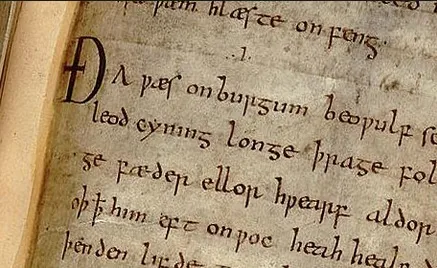 þam hlæste onfeng
.1.
ÐA ƿæs onburgum beoƿulf sc
leod cyning longe þrage fol
ge fæder ellor hƿearf aldor
oþꝥ him eft onƿoc heah healf
þenden lifde